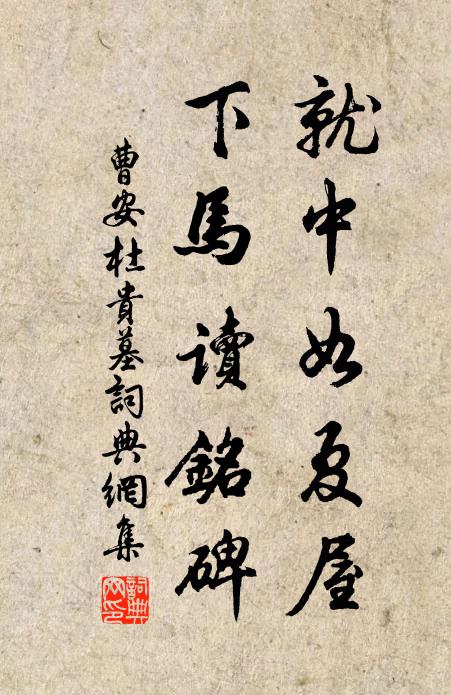 就中如夏屋
下馬讀銘碑
曹安杜貴墓詞典網集
詞典
网印